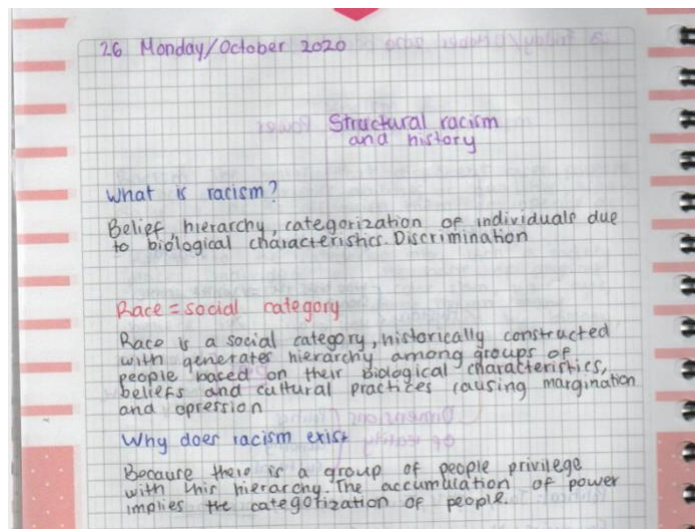 26 Monday/October 2020
Structural racism
and history
What is racism?
Belief, hierarchy, categorization of individuals due
to biological characteristics. Discrimination
Race = social category
Race is a social category, historically constructed
with generates hierarchy among groups of
people based on their biological characteristics,
beliefs and cultural practices causing margination
and opression
Why does racism exist
Because there is a group of people privilege
with this hierarchy. The accumulation of power
implies the categorization of people.